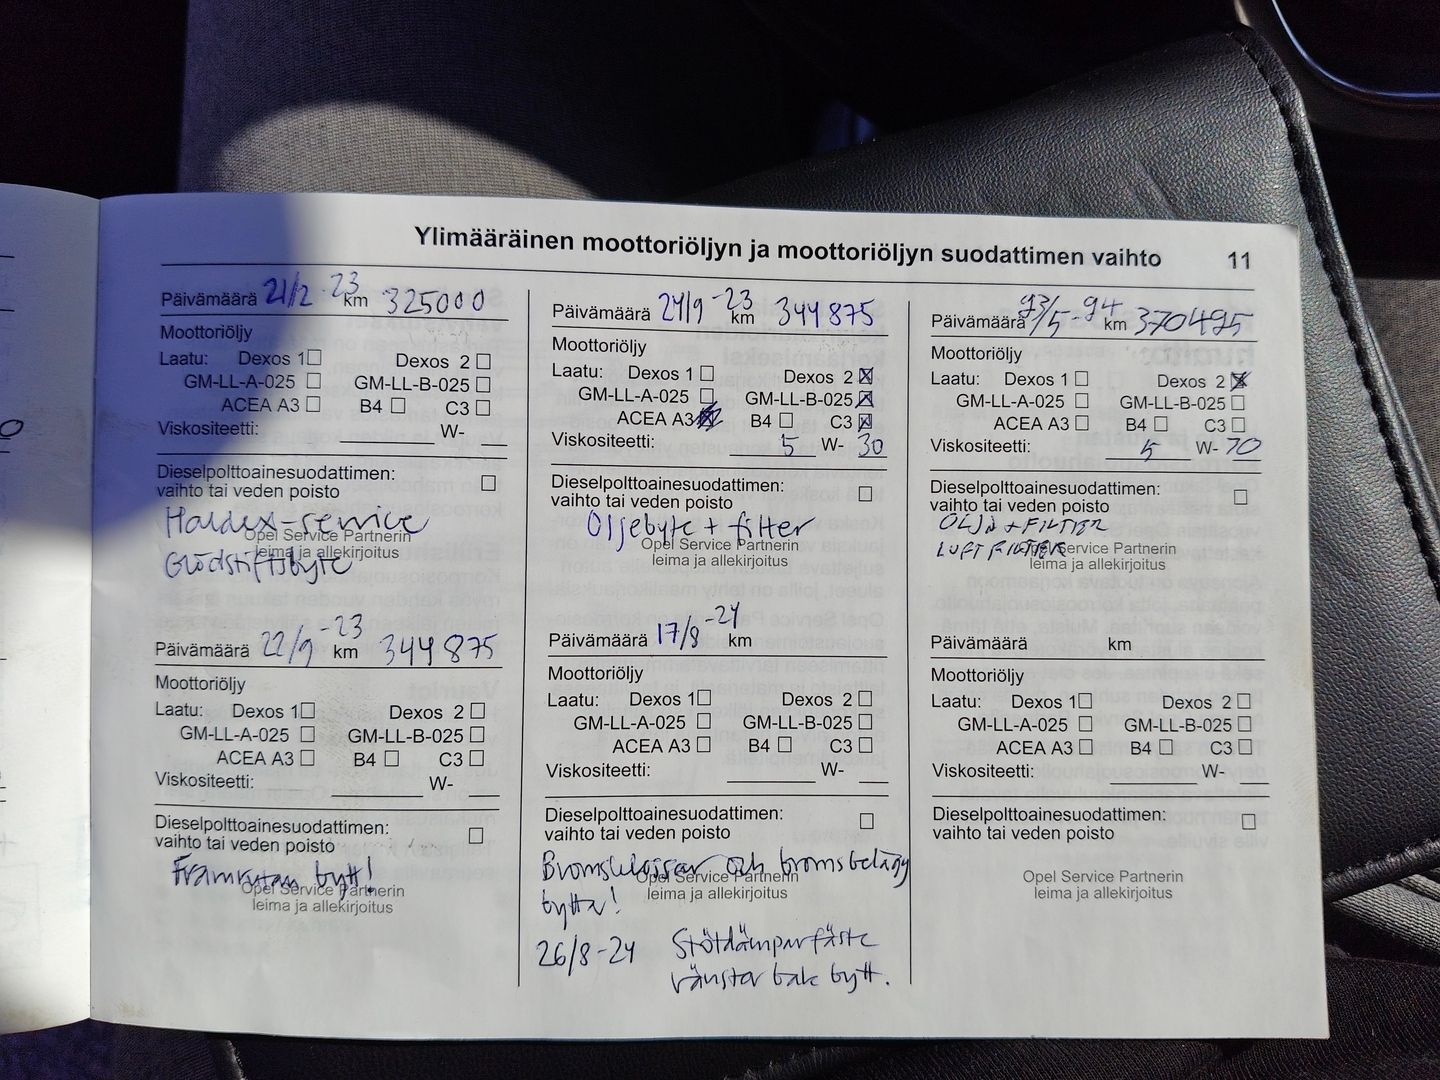 Ylimääräinen moottoriöljyn ja moottoriöljyn suodattimen vaihto 11
Päivämäärä 21/2 -23 km 325000
Moottoriöljy
Laatu: Dexos 1 Dexos 2
GM-LL-A-025 GM-LL-B-025
ACEA A3 B4 C3
Viskositeetti: W-
Dieselpolttoainesuodattimen:
vaihto tai veden poisto
Haldex-service
Opel Service Partnerin
leima ja allekirjoitus
Glödstiftsbyte
Päivämäärä 22/9 -23 km 344875
Moottoriöljy
Laatu: Dexos 1 Dexos 2
GM-LL-A-025 GM-LL-B-025
ACEA A3 B4 C3
Viskositeetti: W-
Dieselpolttoainesuodattimen:
vaihto tai veden poisto
Framrutan bytt!
Opel Service Partnerin
leima ja allekirjoitus
Päivämäärä 24/9 -23 km 344875
Moottoriöljy
Laatu: Dexos 1 Dexos 2
GM-LL-A-025 GM-LL-B-025
ACEA A3 B4 C3
Viskositeetti: 5 W- 30
Dieselpolttoainesuodattimen:
vaihto tai veden poisto
Oljebyte + filter
Opel Service Partnerin
leima ja allekirjoitus
Päivämäärä 17/8 -24 km
Moottoriöljy
Laatu: Dexos 1 Dexos 2
GM-LL-A-025 GM-LL-B-025
ACEA A3 B4 C3
Viskositeetti: W-
Dieselpolttoainesuodattimen:
vaihto tai veden poisto
Bromsklossar och bromsbelägg
Opel Service Partnerin
leima ja allekirjoitus
bytta!
26/8-24 Stötdämparfäste
vänster bak bytt.
Päivämäärä km 370495
Moottoriöljy
Laatu: Dexos 1 Dexos 2
GM-LL-A-025 GM-LL-B-025
ACEA A3 B4 C3
Viskositeetti: 5 W-
Dieselpolttoainesuodattimen:
vaihto tai veden poisto
OLJA + FILTER
LUFTFILTER
Opel Service Partnerin
leima ja allekirjoitus
Päivämäärä km
Moottoriöljy
Laatu: Dexos 1 Dexos 2
GM-LL-A-025 GM-LL-B-025
ACEA A3 B4 C3
Viskositeetti: W-
Dieselpolttoainesuodattimen:
vaihto tai veden poisto
Opel Service Partnerin
leima ja allekirjoitus